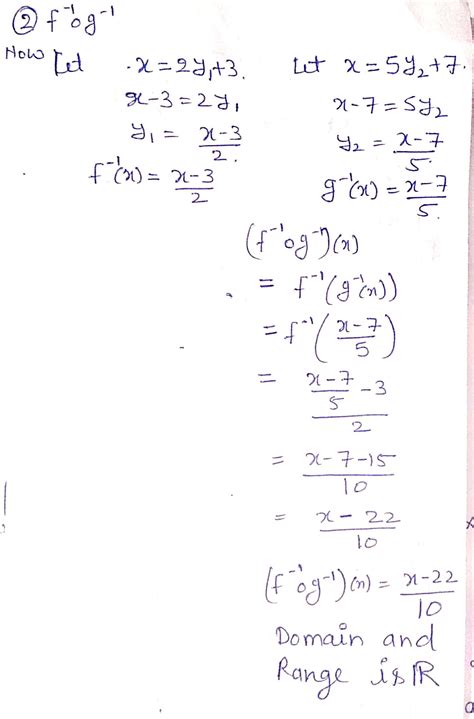 ② f⁻¹og⁻¹
Now Let x = 2y₁+3.
x-3 = 2y₁
y₁ = x-3/2.
f⁻¹(x) = x-3/2
Let x = 5y₂+7.
x-7 = 5y₂
y₂ = x-7/5.
g⁻¹(x) = x-7/5.
(f⁻¹og⁻¹)(x)
= f⁻¹(g⁻¹(x))
= f⁻¹(x-7/5)
= x-7/5 -3/2
= x-7-15/10
= x-22/10
(f⁻¹og⁻¹)(x) = x-22/10
Domain and
Range is ℝ